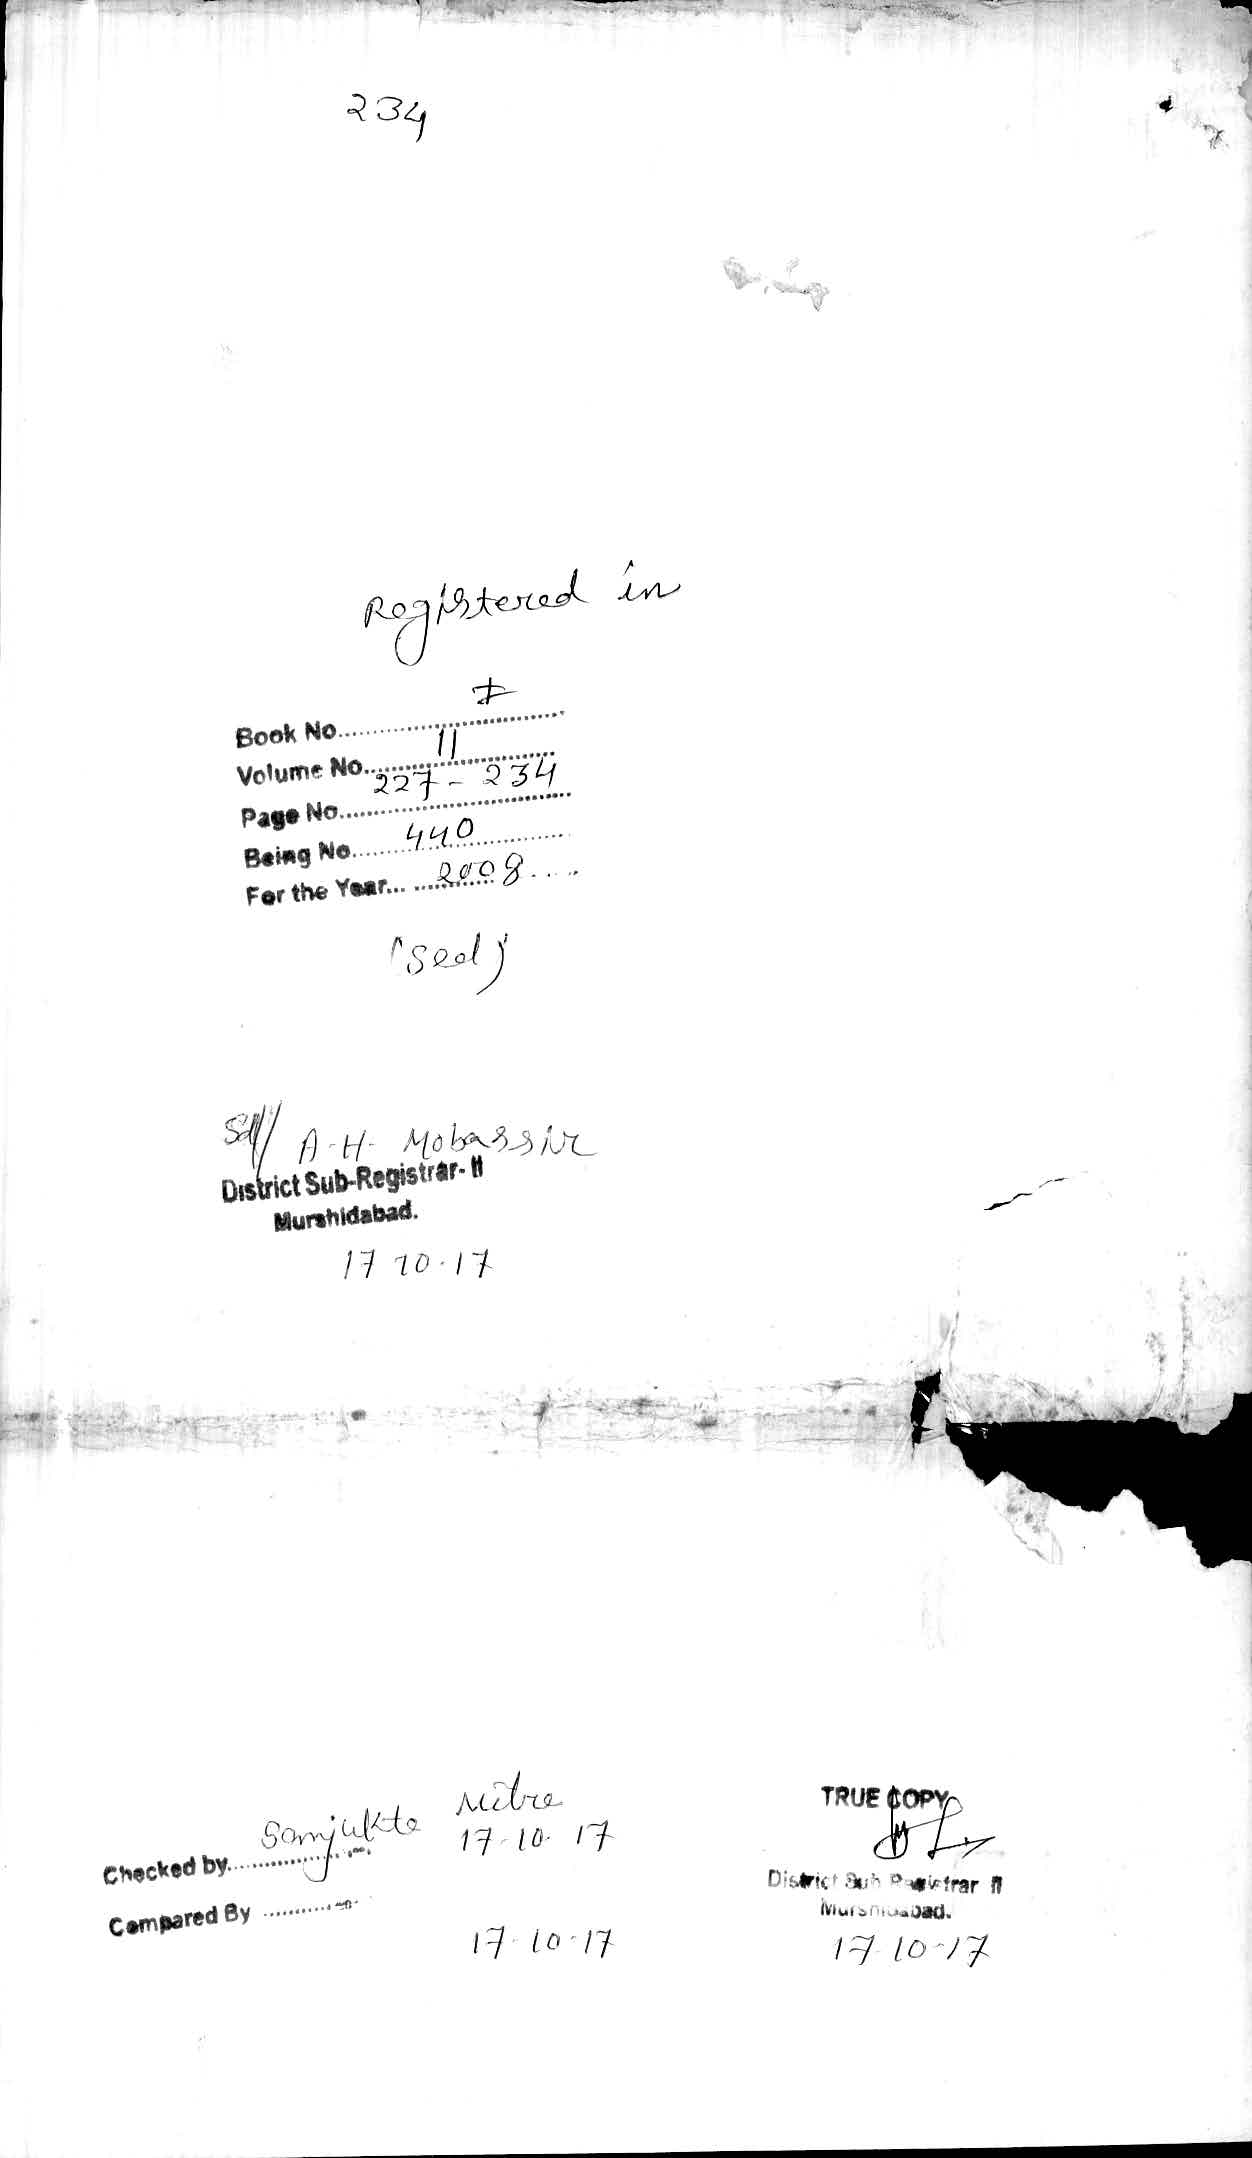 234
Registered in
Book No. I
Volume No. 11
Page No. 227 - 234
Being No. 440
For the Year... 2008
(Seal)
Sd/ A-H- Mobassir
District Sub-Registrar-II
Murshidabad.
17 10.17
Checked by. Samjukta Mitra 17-10-17
Compared By
17-10-17
TRUE COPY
District Sub Registrar II
Murshidabad.
17-10-17